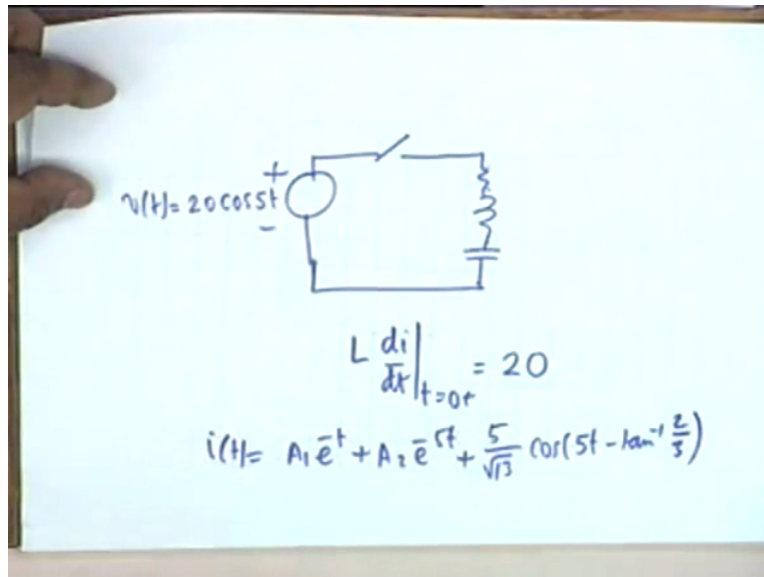 +
v(t)= 20 cos5t
-
L di/dt |t=0+ = 20
i(t)= A₁ e^-t + A₂ e^-5t + 5/√13 cos(5t - tan⁻¹ 2/3)